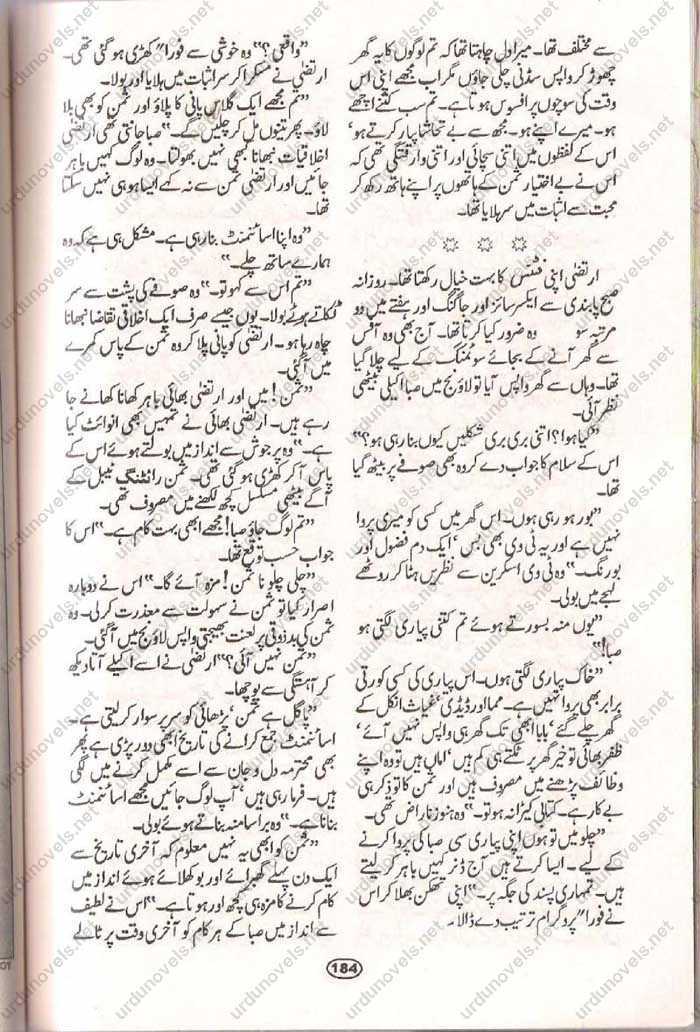 سے مختلف تھا۔ میرا دل چاہتا تھا کہ تم لوگوں کا یہ گھر
چھوڑ کر واپس سڈنی چلی جاؤں مگر اب مجھے اپنی اس
وقت کی سوچوں پر افسوس ہوتا ہے۔ تم سب کتنے اچھے
ہو۔ میرے اپنے ہو۔ مجھ سے بے تحاشا پیار کرتے ہو‘‘
اس کے لفظوں میں اتنی سچائی اور اتنی وارفتگی تھی کہ
اس نے بے اختیار ثمن کے ہاتھوں پر اپنے ہاتھ رکھ کر
محبت سے اثبات میں سر ہلایا تھا۔
ارتضیٰ اپنی فٹنس کا بہت خیال رکھتا تھا۔ روزانہ
صبح پابندی سے ایکسرسائز اور جاگنگ اور ہفتے میں دو
مرتبہ سو وہ ضرور کیا کرتا تھا۔ آج بھی وہ آفس
سے گھر آنے کے بجائے سوئمنگ کے لیے چلا گیا
تھا۔ وہاں سے گھر واپس آیا تو لاؤنج میں صبا اکیلی بیٹھی
نظر آئی۔
’’کیا ہوا؟ اتنی بری بری شکلیں کیوں بنا رہی ہو؟‘‘
اس کے سلام کا جواب دے کر وہ بھی صوفے پر بیٹھ گیا
تھا۔
’’بور ہو رہی ہوں۔ اس گھر میں کسی کو میری پروا
نہیں ہے اور یہ ٹی وی بھی بس‘ ایک دم فضول اور
بورنگ۔‘‘ وہ ٹی وی اسکرین سے نظریں ہٹا کر روٹھے
لہجے میں بولی۔
’’یوں منہ بسورتے ہوئے تم کتنی پیاری لگتی ہو
صبا!‘‘
’’خاک پیاری لگتی ہوں۔ اس پیاری کی کسی کو رتی
برابر بھی پروا نہیں ہے۔ مما اور ڈیڈی‘ غیاث انکل کے
گھر چلے گئے‘ بابا ابھی تک گھر ہی واپس نہیں آئے‘
ظفر بھائی تو خیر گھر پر ٹکتے ہی کم ہیں‘ اماں ہیں تو وہ اپنے
وظائف پڑھنے میں مصروف ہیں اور ثمن کا تو ذکر ہی
بے کار ہے۔ کتابی کیڑا نہ ہو تو۔‘‘ وہ ہنوز ناراض تھی۔
’’چلو میں تو ہوں اپنی پیاری سی صبا کی پروا کرنے
کے لیے۔ ایسا کرتے ہیں آج ڈنر کہیں باہر کر لیتے
ہیں۔ تمہاری پسند کی جگہ پر۔‘‘ اپنی تھکن بھلا کر اس
نے فوراً پروگرام ترتیب دے ڈالا۔
’’واقعی؟‘‘ وہ خوشی سے فوراً کھڑی ہو گئی تھی۔
ارتضیٰ نے مسکرا کر سر اثبات میں ہلایا اور بولا۔
’’تم مجھے ایک گلاس پانی کا پلاؤ اور ثمن کو بھی بلا
لاؤ۔ پھر تینوں مل کر چلیں گے۔‘‘ صبا جانتی تھی ارتضیٰ
اخلاقیات نبھانا کبھی نہیں بھولتا۔ وہ لوگ کہیں باہر
جائیں اور ارتضیٰ ثمن سے نہ کہے ایسا ہو ہی نہیں سکتا
تھا۔
’’وہ اپنا اسائنمنٹ بنا رہی ہے۔ مشکل ہی ہے کہ وہ
ہمارے ساتھ چلے۔‘‘
’’تم اس سے کہو تو۔‘‘ وہ صوفے کی پشت سے سر
ٹکاتے ہوئے بولا۔ یوں جیسے صرف ایک اخلاقی تقاضا نبھانا
چاہ رہا ہو۔ ارتضیٰ کو پانی پلا کر وہ ثمن کے پاس کمرے
میں آ گئی۔
’’ثمن! میں اور ارتضیٰ بھائی باہر کھانا کھانے جا
رہے ہیں۔ ارتضیٰ بھائی نے تمہیں بھی انوائٹ کیا
ہے۔‘‘ وہ پرجوش سے انداز میں بولتے ہوئے اس کے
پاس آ کر کھڑی ہو گئی تھی۔ ثمن رائٹنگ ٹیبل کے
آگے بیٹھی مسلسل کچھ لکھنے میں مصروف تھی۔
’’تم لوگ جاؤ صبا! مجھے ابھی بہت کام ہے۔‘‘ اس کا
جواب حسب توقع تھا۔
’’چلی چلو نا ثمن! مزہ آئے گا۔‘‘ اس نے دوبارہ
اصرار کیا تو ثمن نے سہولت سے معذرت کر لی۔ وہ
ثمن کی بدذوقی پر لعنت بھیجتی واپس لاؤنج میں آ گئی۔
’’ثمن نہیں آئی؟‘‘ ارتضیٰ نے اسے اکیلے آتا دیکھ
کر آہستگی سے پوچھا۔
’’پاگل ہے ثمن‘ پڑھائی کو سر پر سوار کر لیتی ہے۔
اسائنمنٹ جمع کرانے کی تاریخ ابھی دور پڑی ہے پھر
بھی محترمہ دل و جان سے اسے مکمل کرنے میں لگی
ہیں۔ فرما رہی ہیں‘ آپ لوگ جائیں مجھے اسائنمنٹ
بنانا ہے۔‘‘ وہ برا سا منہ بناتے ہوئے بولی۔
’’ثمن کو ابھی یہ نہیں معلوم کہ آخری تاریخ سے
ایک دن پہلے گھبرائے اور بوکھلائے ہوئے انداز میں
کام کرنے کا مزہ ہی کچھ اور ہوتا ہے۔‘‘ اس نے لطیف
سے انداز میں صبا کے ہر کام کو آخری وقت پر ٹالے
184
urdunovels.net